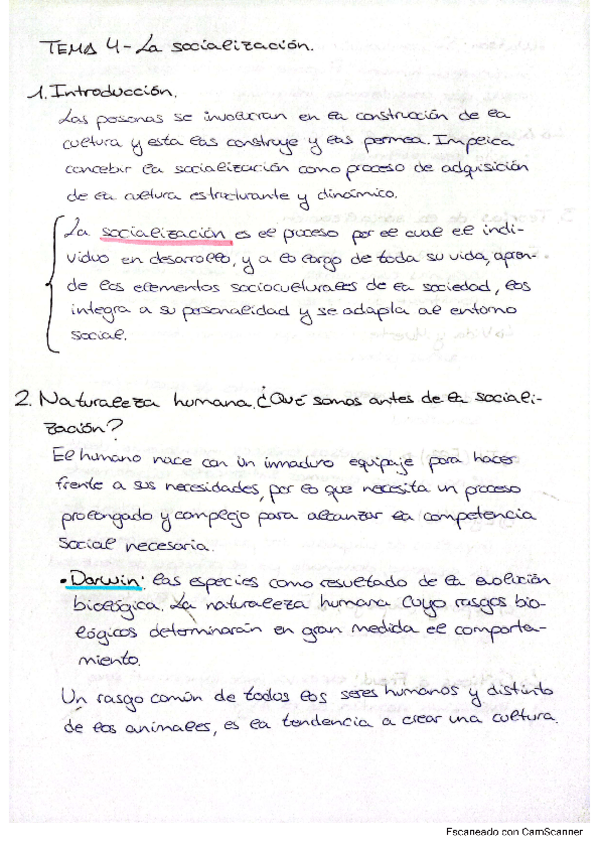 TEMA 4 - La socialización.
1. Introducción.
Las personas se involucran en la construcción de la
cultura y esta las construye y las permea. Impeica
concebir la socialización como proceso de adquisición
de la cultura estructurante y dinámico.
La socialización es el proceso por el cual el indi-
viduo en desarrollo, y a lo largo de toda su vida, apren-
de los elementos socioculturales de la sociedad, los
integra a su personalidad y se adapta al entorno
social.
2. Naturaleza humana. ¿Qué somos antes de la sociali-
zación?
El humano nace con un inmaduro equipaje para hacer
frente a sus necesidades, por lo que necesita un proceso
prolongado y complejo para alcanzar la competencia
social necesaria.
• Darwin: las especies como resultado de la evolución
biológica. La naturaleza humana cuyo rasgos bio-
lógicos determinarán en gran medida el comporta-
miento.
Un rasgo común de todos los seres humanos y distinto
de los animales, es la tendencia a crear una cultura.
Escaneado con CamScanner